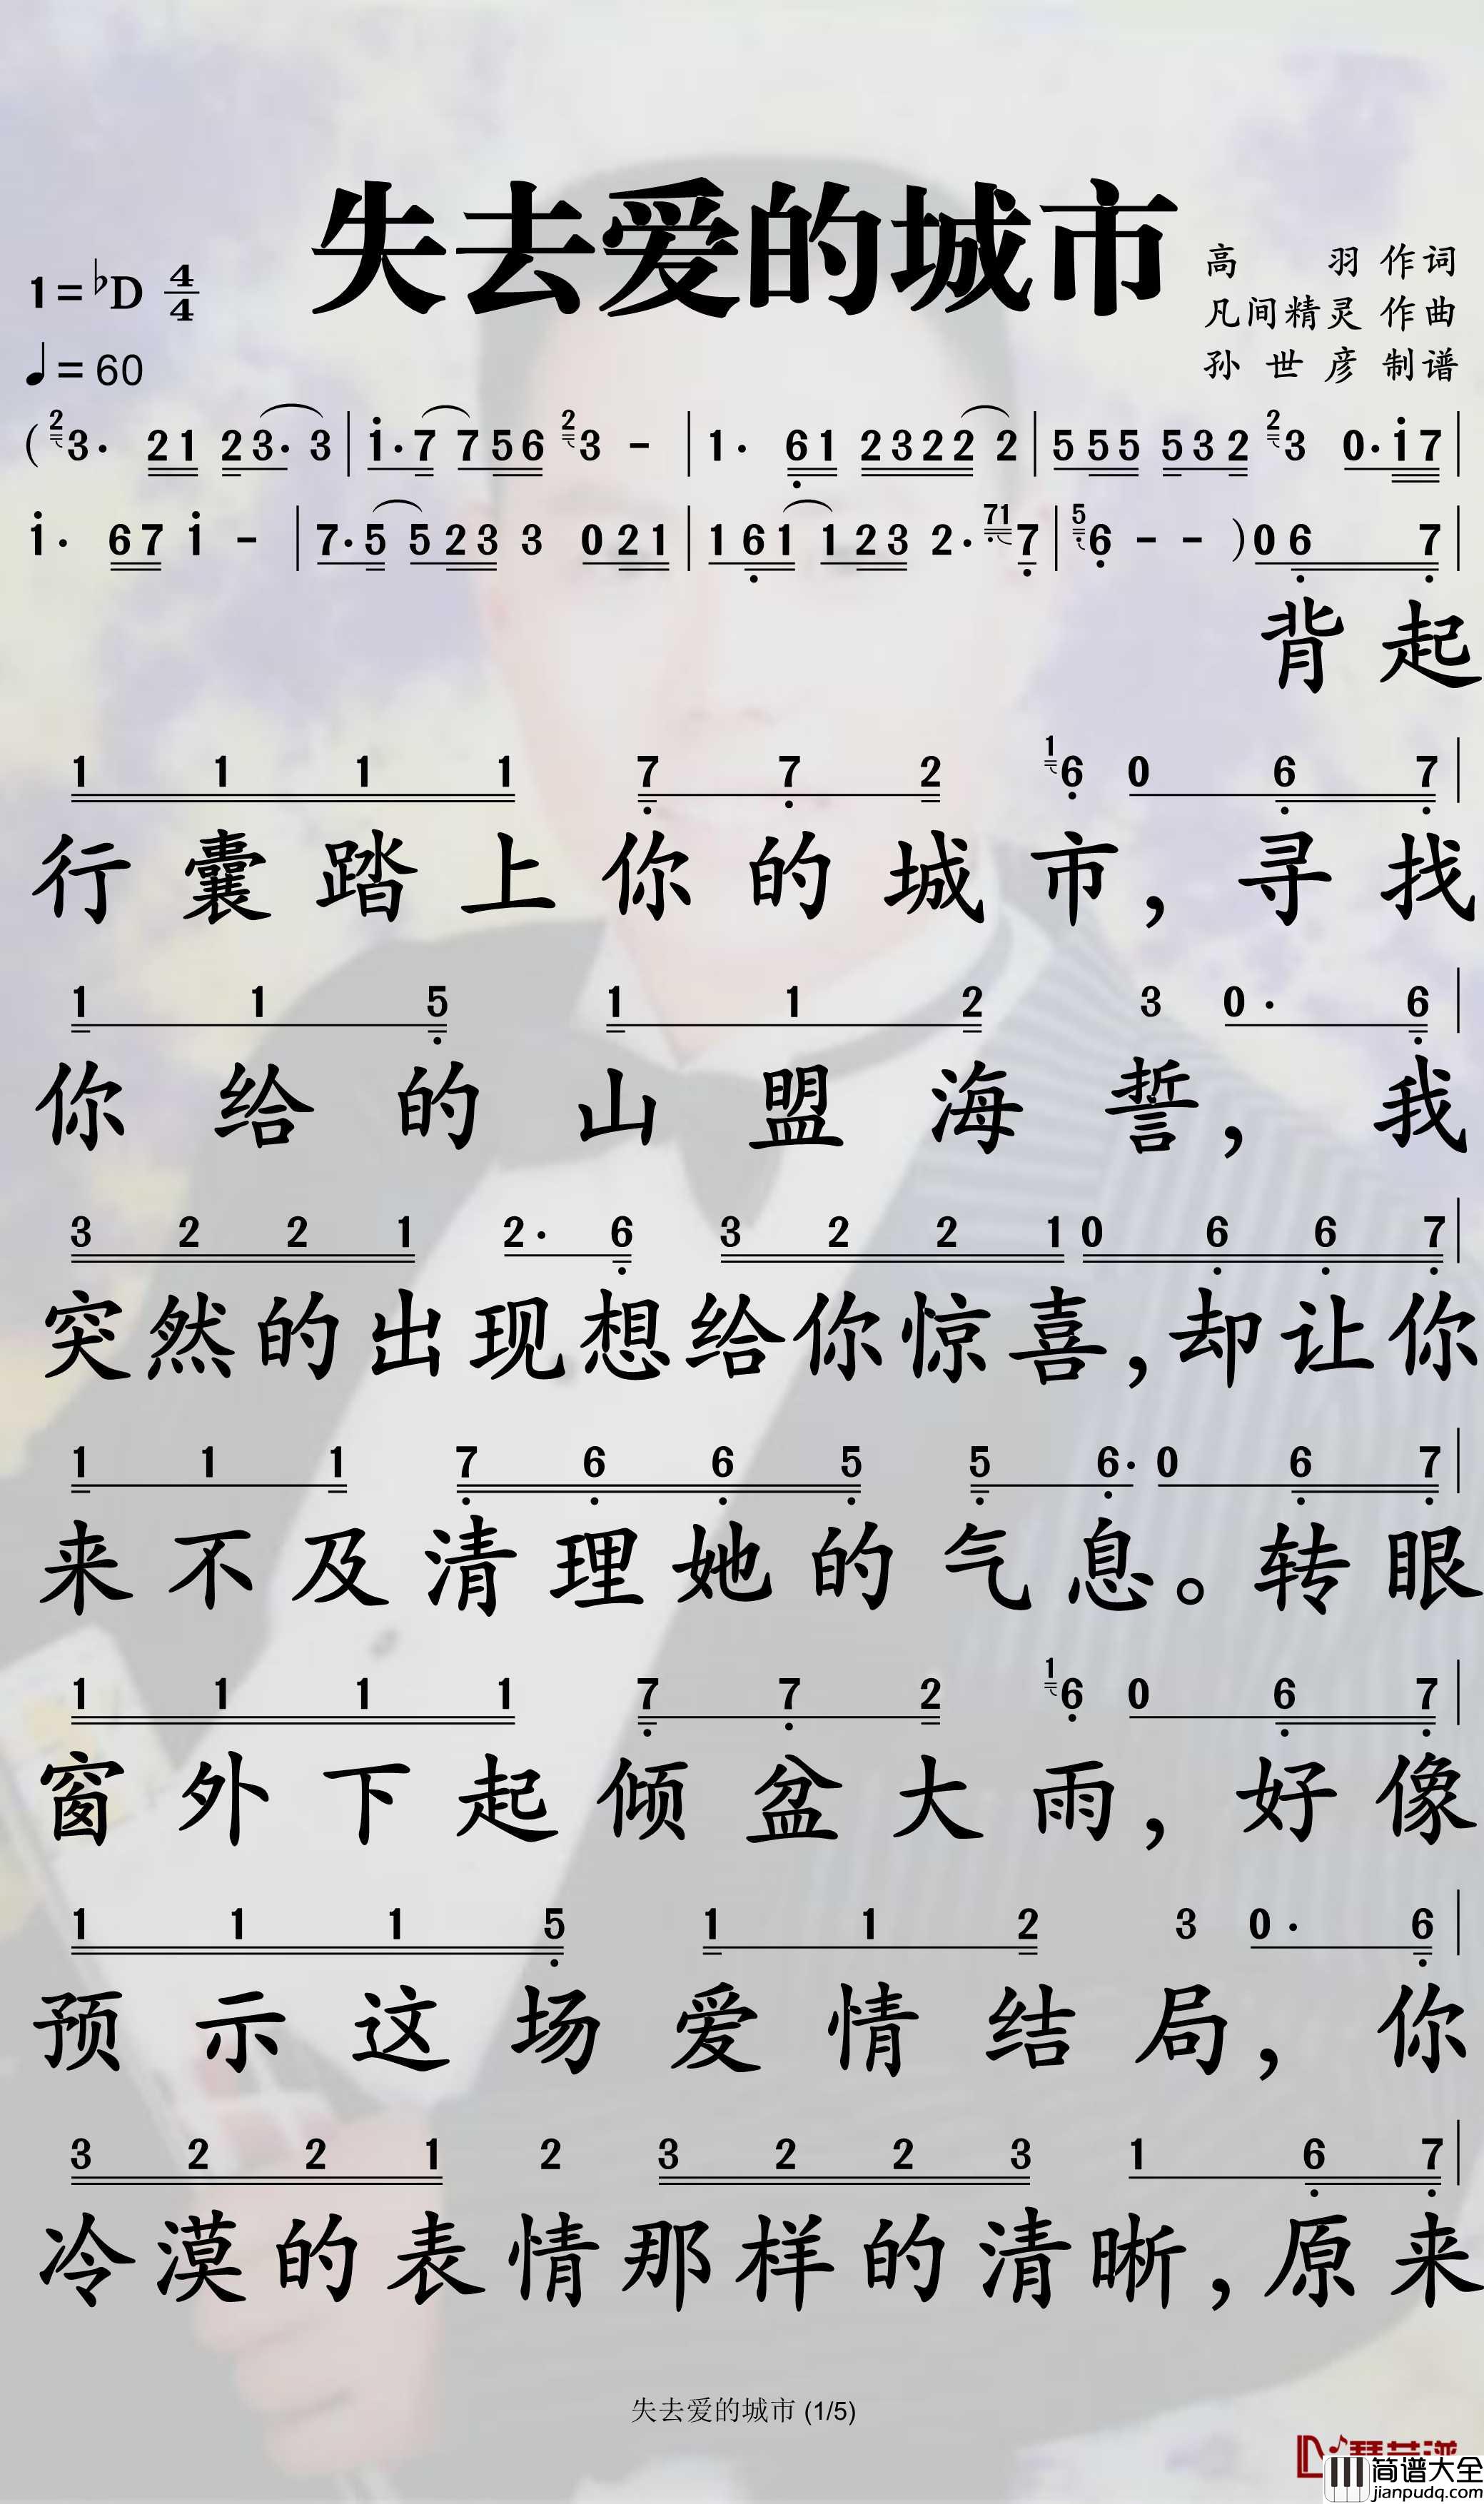 失去爱的城市
1=♭D 4/4
♩=60
高 羽 作词
凡间精灵 作曲
孙世彦 制谱
( 2 3· 21 23· 3 | i· 7 756 2 3 - | 1· 61 2322 2 | 555 532 2 3 0· i7 |
i· 67 i - | 7·5 523 3 021 | 161 123 2· 71 7 | 5 6 - - ) 0 6 7 |
背起
1 1 1 1 7 7 2 1 6 0 6 7 |
行囊踏上你的城市，寻找
1 1 5 1 1 2 3 0· 6 |
你给的山盟海誓，我
3 2 2 1 2· 6 3 2 2 1 0 6 6 7 |
突然的出现想给你惊喜，却让你
1 1 1 7 6 6 5 5 6· 0 6 7 |
来不及清理她的气息。转眼
1 1 1 1 7 7 2 1 6 0 6 7 |
窗外下起倾盆大雨，好像
1 1 1 5 1 1 2 3 0· 6 |
预示这场爱情结局，你
3 2 2 1 2 3 2 2 3 1 6 7 |
冷漠的表情那样的清晰，原来
失去爱的城市 (1/5)
简谱大全
jianpudq.com